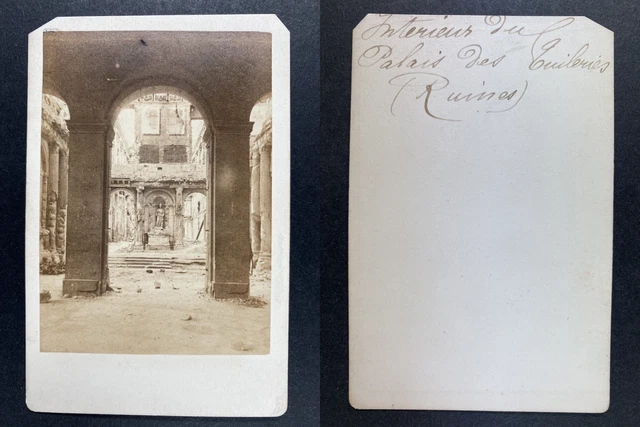 Interieur du
Palais des Tuileries
(Ruines)